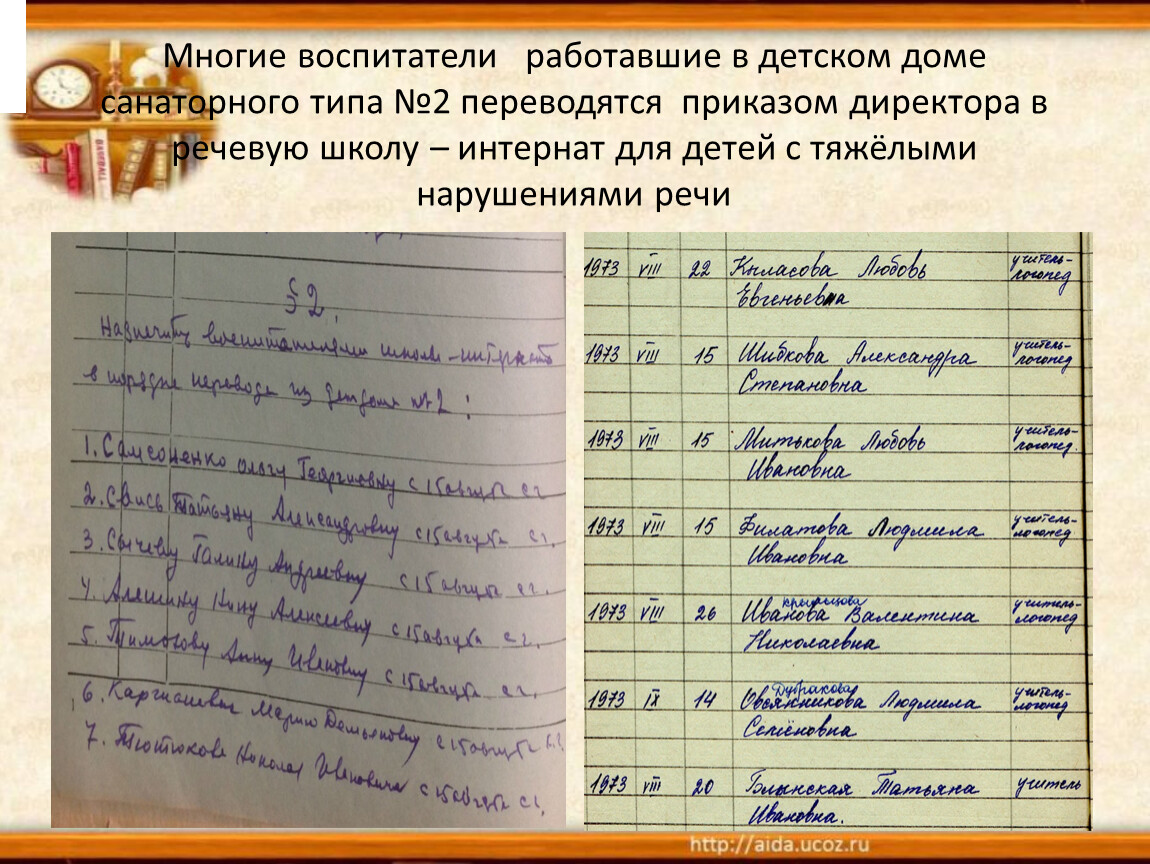 Многие воспитатели работавшие в детском доме
санаторного типа №2 переводятся приказом директора в
речевую школу – интернат для детей с тяжёлыми
нарушениями речи
§ 2.
Назначить воспитателями школы-интерната
в порядке перевода из детдома №2 :
1. Самсоненко Ольгу Георгиевну с 15 августа с.г.
2. Свись Татьяну Александровну с 15 августа с.г.
3. Сычеву Галину Андреевну с 15 августа с.г.
4. Алешину Нину Алексеевну с 15 августа с.г.
5. Анну Ивановну с 15 августа с.г.
6. Марию Демьяновну с 15 августа с.г.
7. Тютюкова Николая Ивановича с 15 августа с.г.
1973 VIII 22 Кыласова Любовь учитель-
Евгеньевна логопед
1973 VIII 15 Шибкова Александра учитель-
Степановна логопед
1973 VIII 15 Митькова Любовь учитель-
Ивановна логопед.
1973 VIII 15 Филатова Людмила учитель-
Ивановна логопед
1973 VIII 26 Иванова Валентина учитель-
Николаевна логопед
Дубракова
1973 IX 14 Овсянникова Людмила учитель-
Семёновна логопед
1973 VIII 20 Блынская Татьяна учитель
Ивановна.
http://aida.ucoz.ru